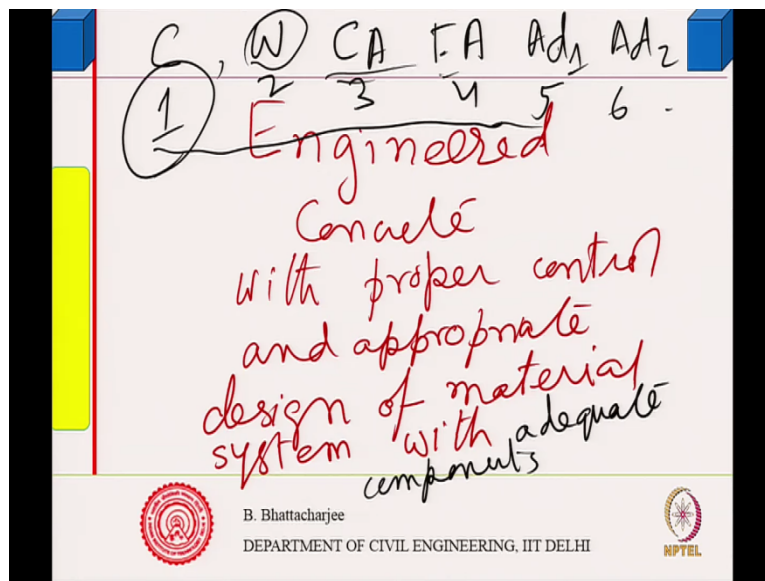 C, W CA FA Ad1 Ad2
1 2 3 4 5 6
Engineered
Concrete
with proper control
and appropriate
design of material
system with adequate
components
B. Bhattacharjee
DEPARTMENT OF CIVIL ENGINEERING, IIT DELHI
NPTEL